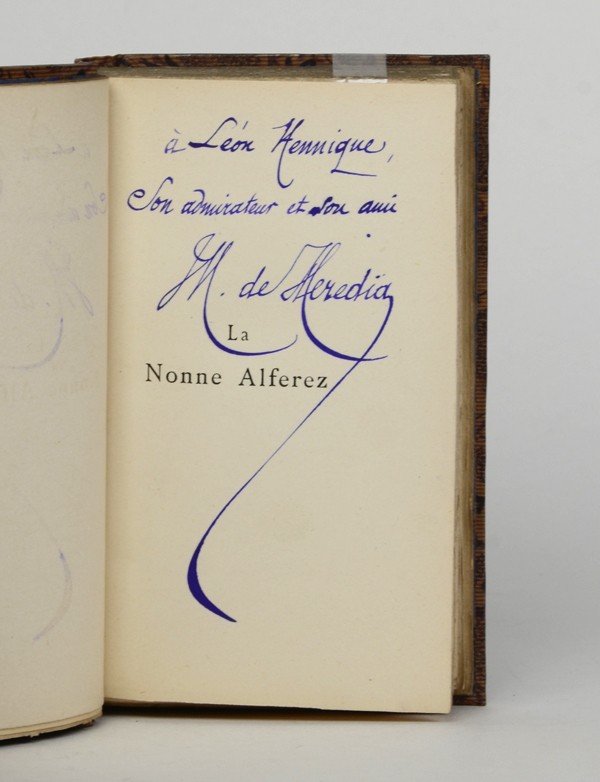 à Léon Hennique,
Son admirateur et son ami
JM. de Heredia
La
Nonne Alferez